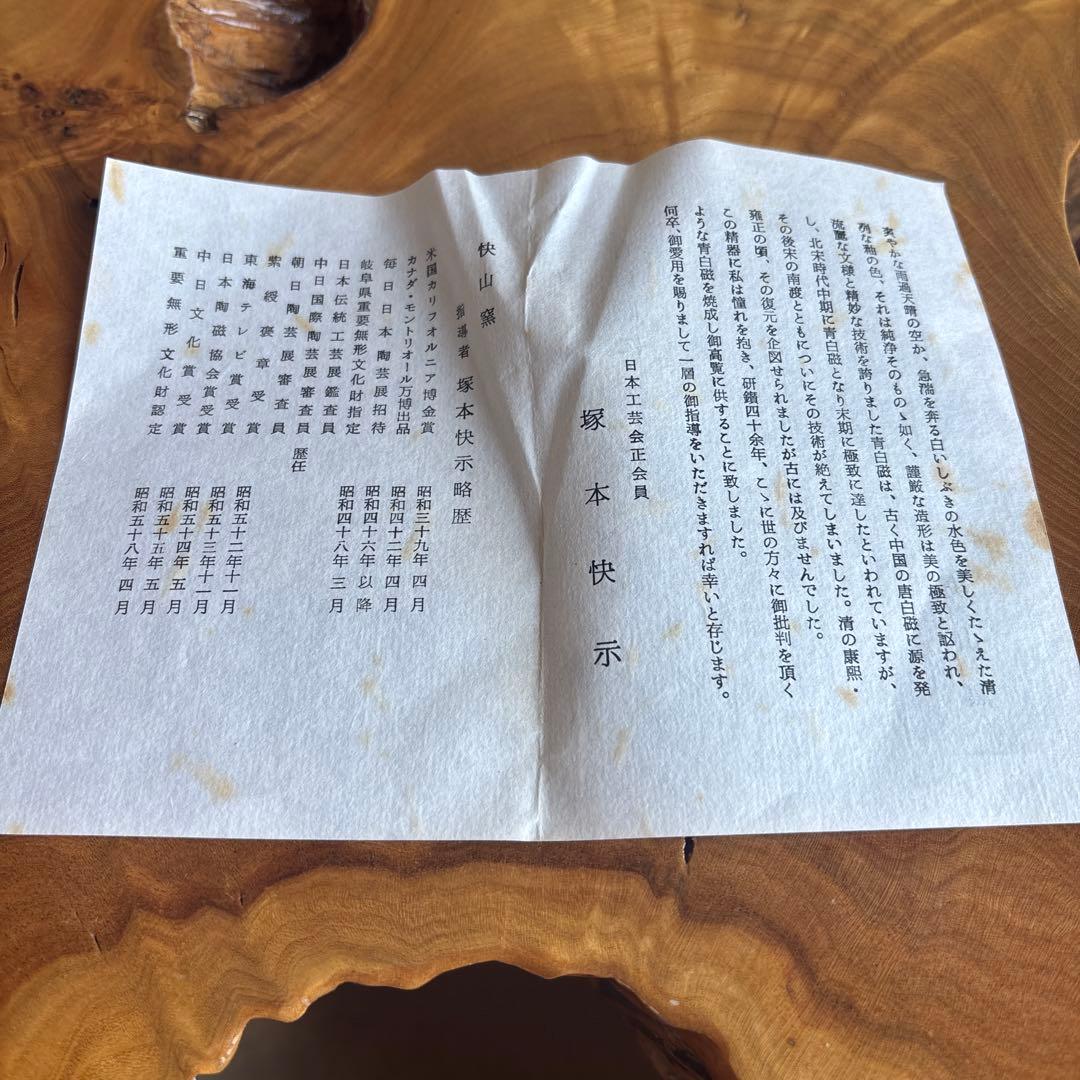 爽やかな雨過天晴の空か、急湍を奔る白いしぶきの水色を美しくたゝえた清
冽な釉の色、それは純浄そのものゝ如く、謹厳な造形は美の極致と謳われ、
流麗な文様と精妙な技術を誇りました青白磁は、古く中国の唐白磁に源を発
し、北宋時代中期に青白磁となり末期に極致に達したといわれていますが、
その後宋の南渡とともについにその技術が絶えてしまいました。清の康熙・
雍正の頃、その復元を企図せられましたが古には及びませんでした。
この精器に私は憧れを抱き、研鑽四十余年、こゝに世の方々に御批判を頂く
ような青白磁を焼成し御高覧に供することに致しました。
何卒、御愛用を賜りまして一層の御指導をいただきますれば幸いと存じます。
日本工芸会正会員
塚本快示
快山窯
指導者 塚本快示略歴
米国カリフオルニア博金賞 昭和三十九年四月
カナダ・モントリオール万博出品 昭和四十二年四月
毎日日本陶芸展招待 昭和四十六年以降
岐阜県重要無形文化財指定 昭和四十八年三月
日本伝統工芸展鑑査員
中日国際陶芸展審査員 歴任
朝日陶芸展審査員
紫綬褒章受賞 昭和五十二年十一月
東海テレビ賞受賞 昭和五十三年十一月
日本陶磁協会賞受賞 昭和五十四年五月
中日文化賞受賞 昭和五十五年五月
重要無形文化財認定 昭和五十八年四月